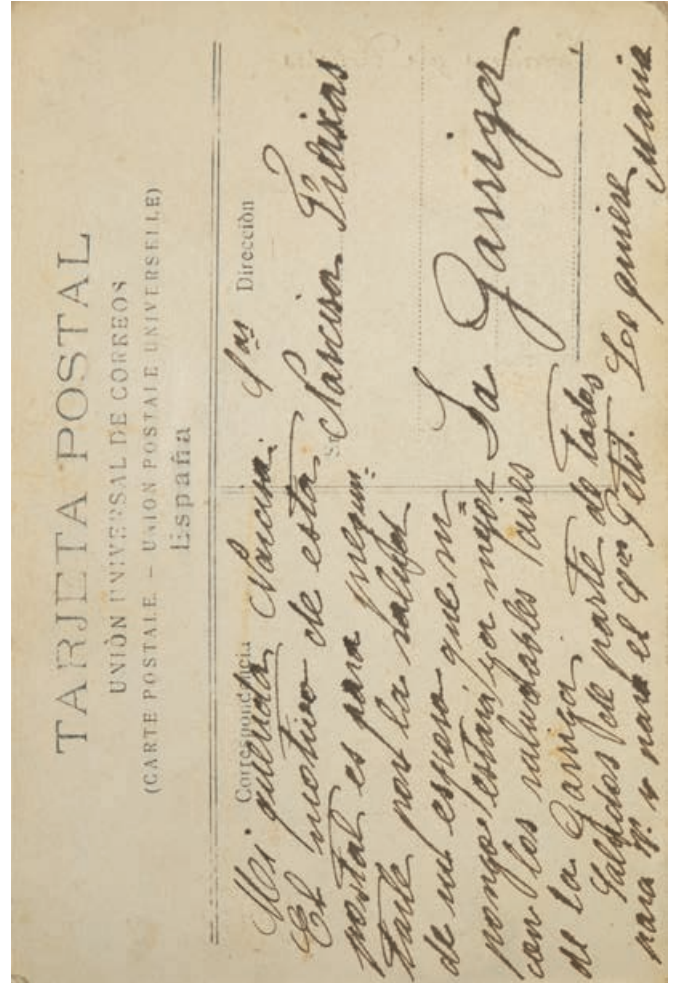 TARJETA POSTAL
UNIÓN UNIVERSAL DE CORREOS
(CARTE POSTALE. – UNION POSTALE UNIVERSELLE)
España
Correspondencia
Dirección
Mi querida Narcisa.
El motivo de esta
postal es para pregun-
tarle por la salud
de su esposo que su-
pongo estará ya mejor
con los saludables aires
de la Garriga
Saludos de parte de todos
para V. y para el Petit. Les quiere
Maria
Narcisa
La Garriga